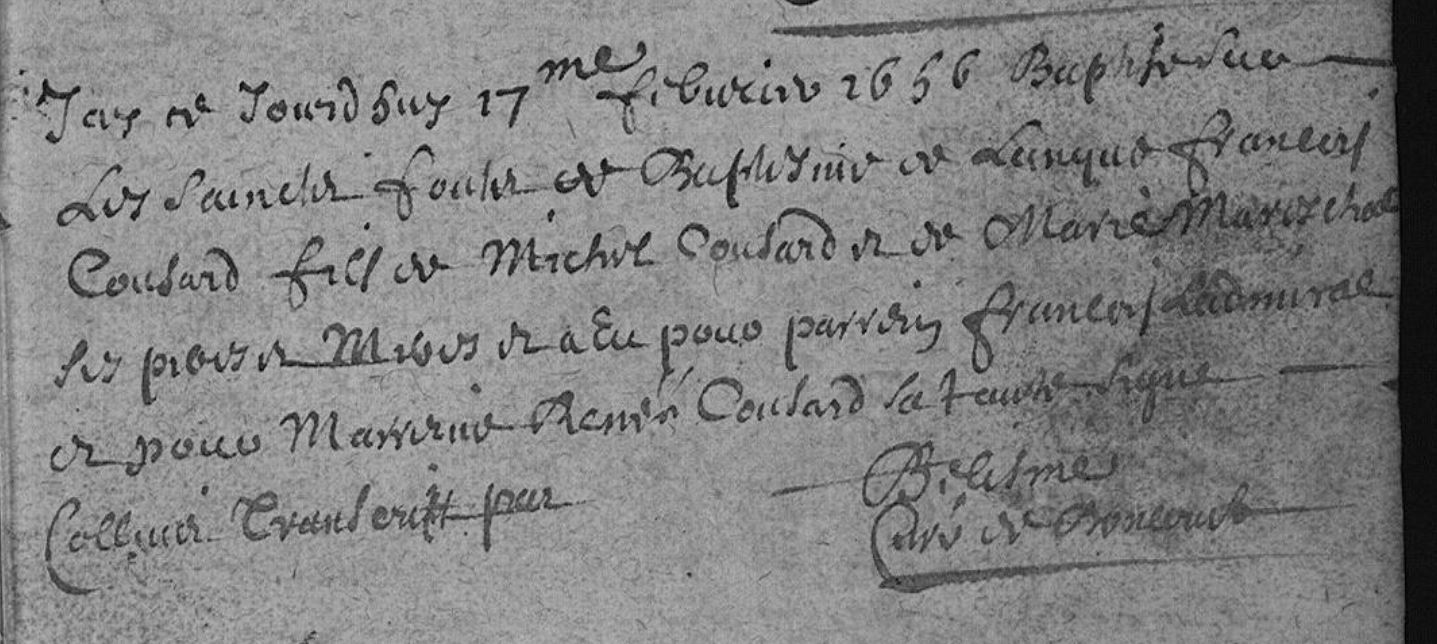 Jay ce Jourdhuy 17me febvrier 1656 Baptise sur
Les saincts fonts de Baptesme de Lenque francois
Cousard fils de Michel Cousard et de Marie Mareschal
ses peres et Meres et a Eu pour parrein francois Ladmiral
et pour Marreine Renée Cousard sa tante signe
Collonné Transcritt par Belesme
Curé de Boncourt